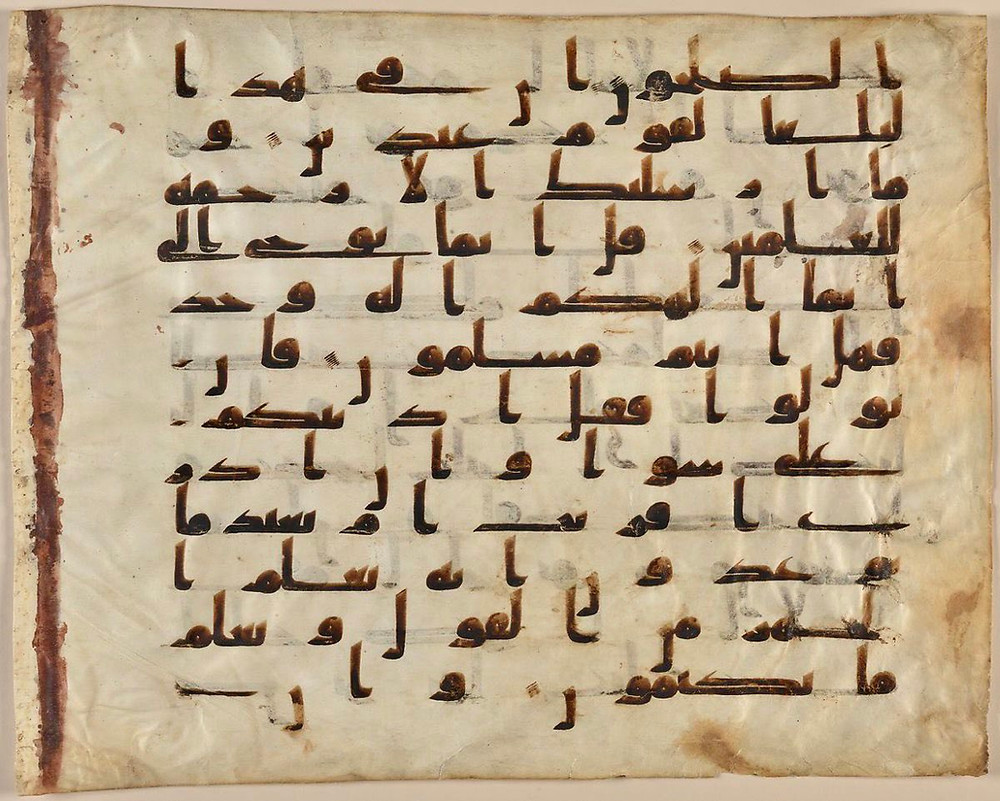 الصلحون ان في هذا
لبلغا لقوم عبدين و
ما ارسلنك الا رحمه
للعلمين قل انما يوحى الي
انما الهكم اله وحد
فهل انتم مسلمون فان
تولوا فقل اذنتكم
على سوا وان ادر
ى اقريب ام بعيد ما
توعدون انه يعلم ا
لجهر من القول ويعلم
ما تكتمون وان